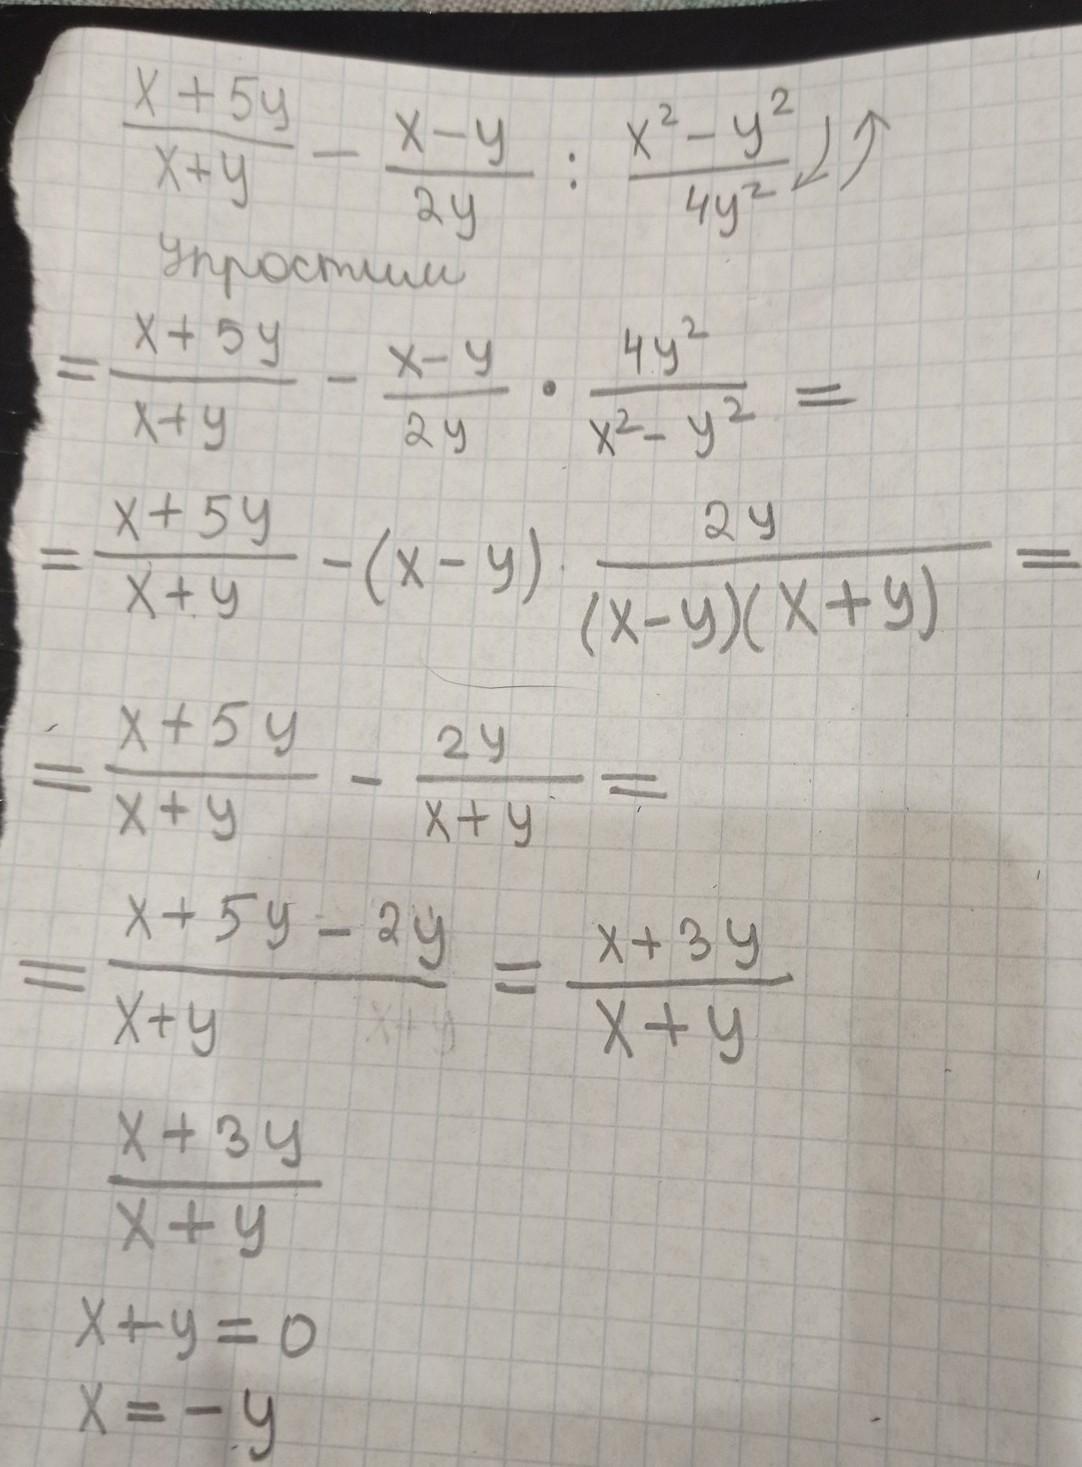 (x + 5y)/(x+y) − (x−y)/(2y) : (x² − y²)/(4y²)
Упростим
= (x + 5y)/(x+y) − (x−y)/(2y) · (4y²)/(x² − y²) =
= (x + 5y)/(x+y) − (x − y) · (2y)/((x−y)(x+y)) =
= (x + 5y)/(x+y) − (2y)/(x+y) =
= (x + 5y − 2y)/(x+y) = (x+3y)/(x+y)
(x+3y)/(x+y)
x+y = 0
x = −y